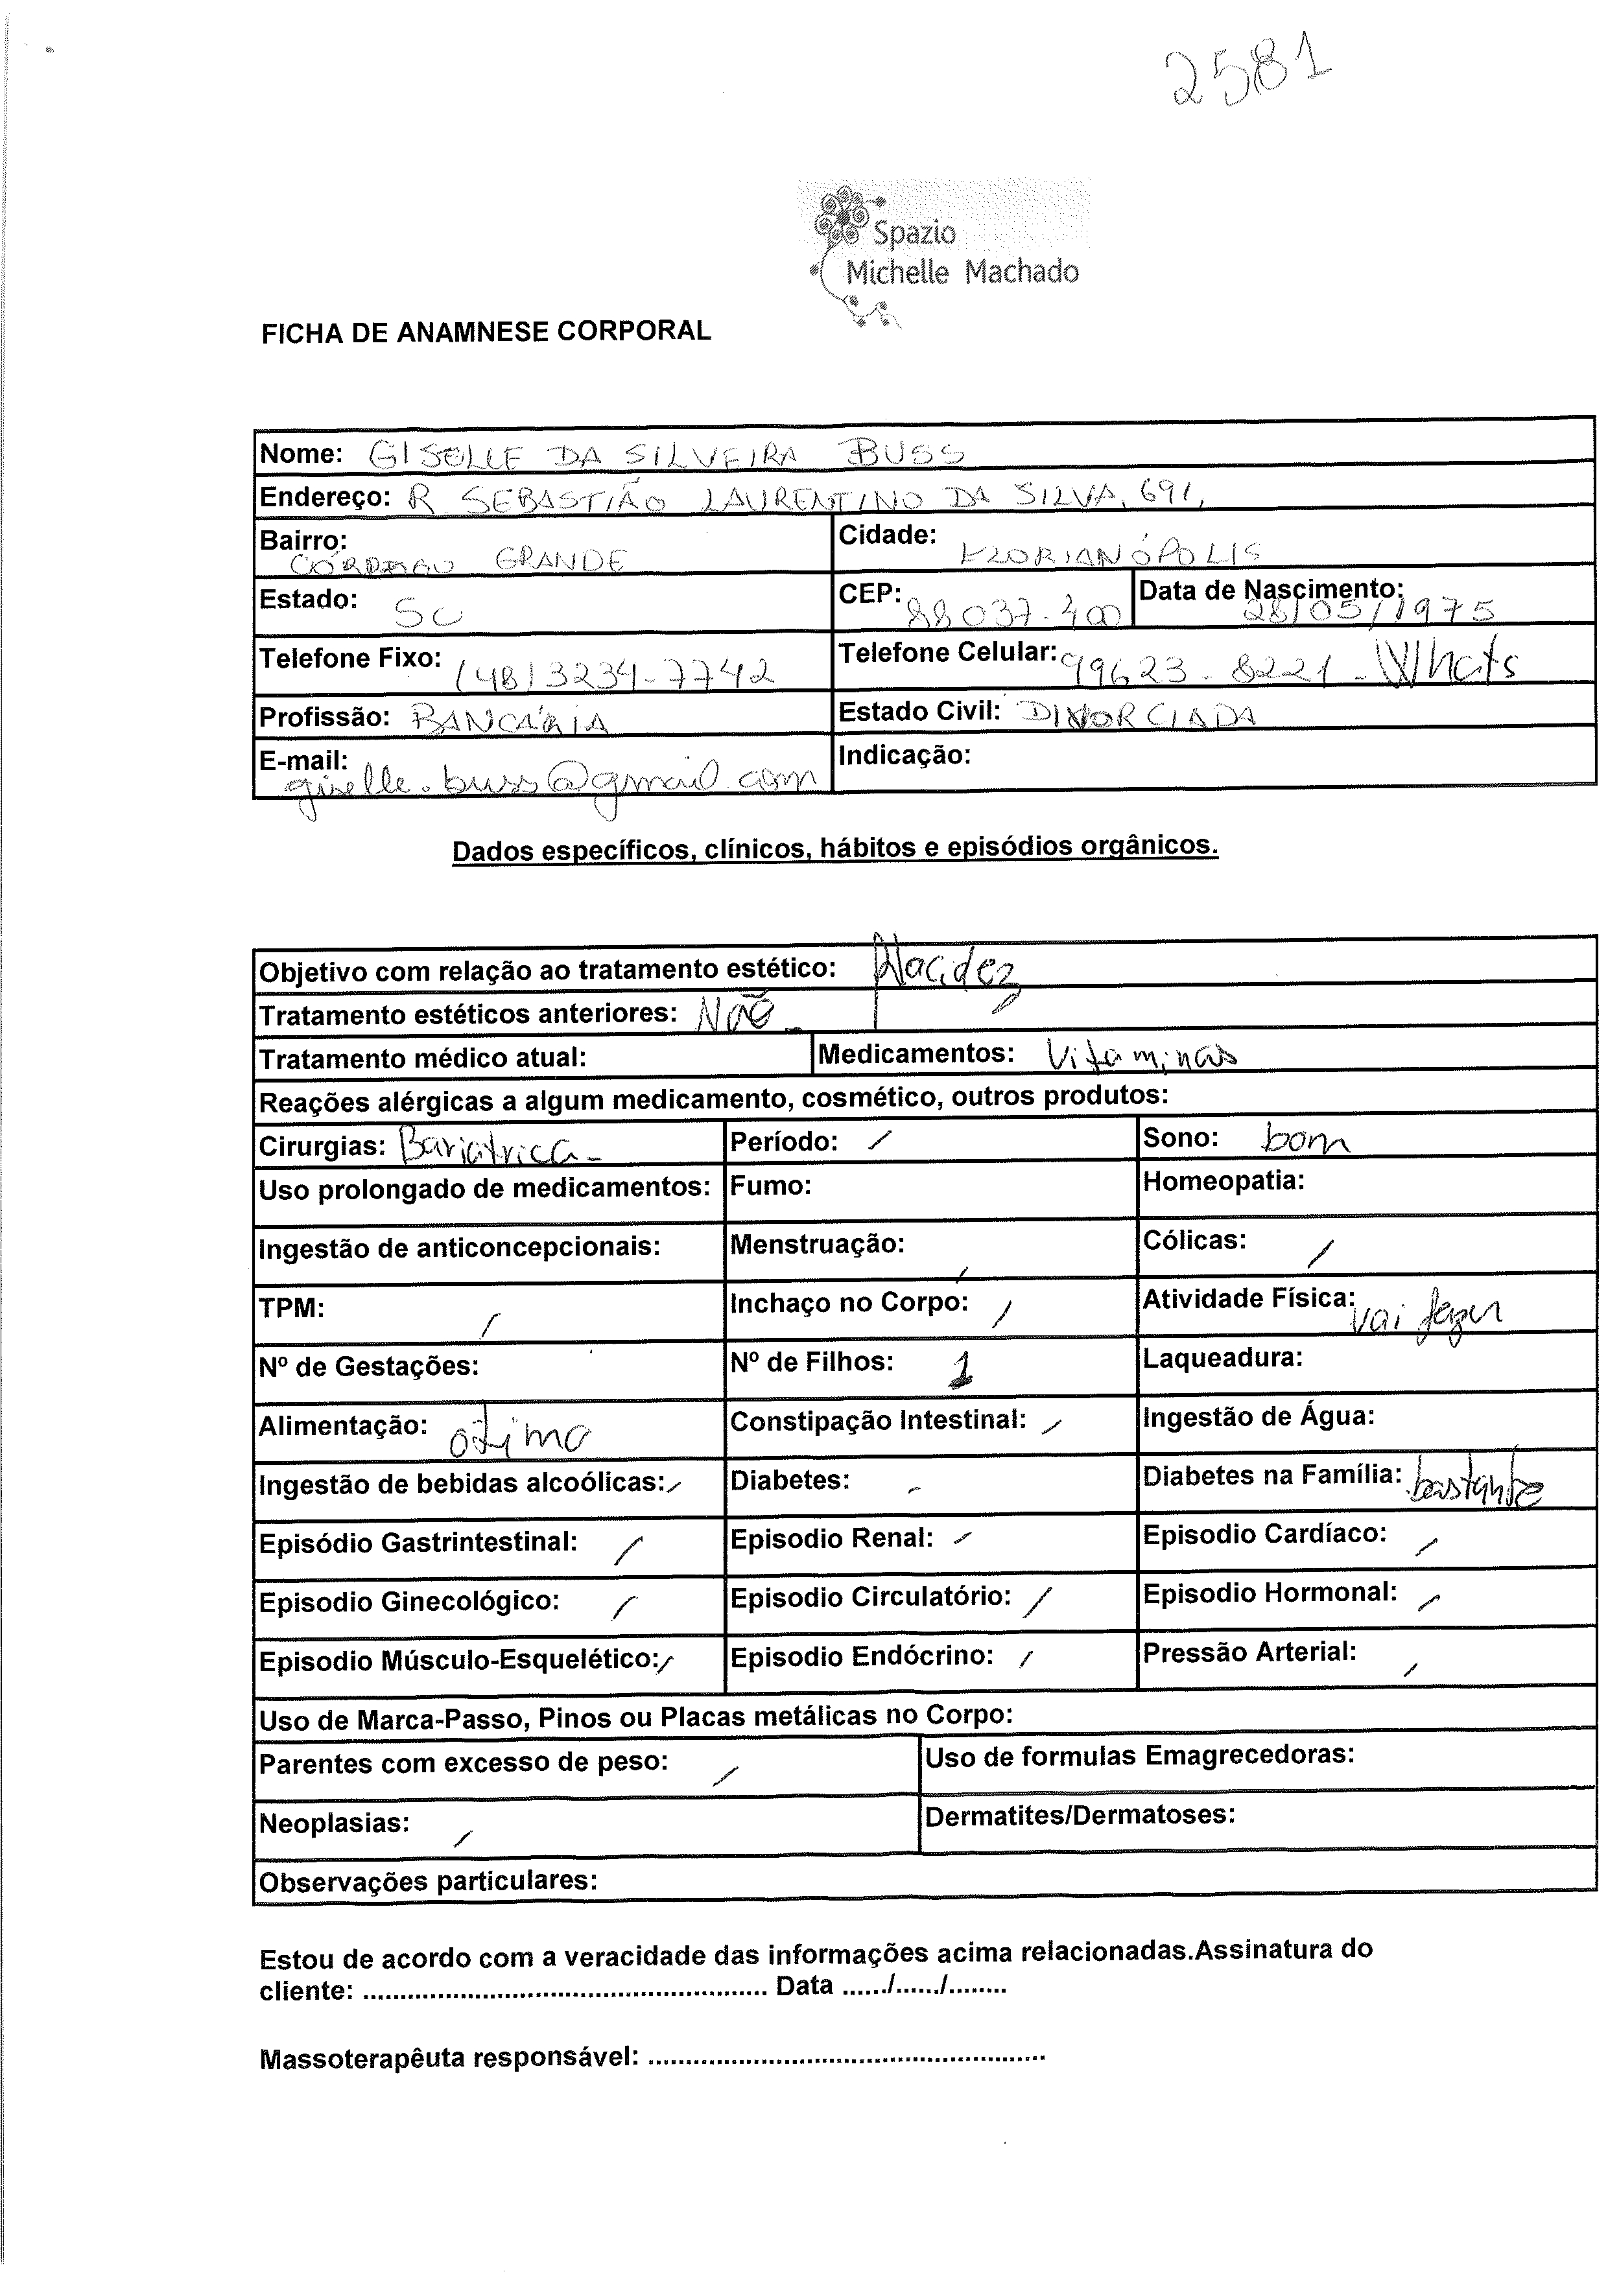 2581
Spazio
Michelle Machado
FICHA DE ANAMNESE CORPORAL
Nome: GISELLE DA SILVEIRA BUSS
Endereço: R SEBASTIÃO LAURENTINO DA SILVA, 691,
Bairro: CÓRREGO GRANDE Cidade: FLORIANÓPOLIS
Estado: SC CEP: 88037-400 Data de Nascimento: 28/05/1975
Telefone Fixo: (48) 3234-7742 Telefone Celular: 99623-8221 - Whats
Profissão: BANCÁRIA Estado Civil: DIVORCIADA
E-mail: giselle.buss@gmail.com Indicação:
Dados específicos, clínicos, hábitos e episódios orgânicos.
Objetivo com relação ao tratamento estético: Flacidez
Tratamento estéticos anteriores: Não -
Tratamento médico atual: Medicamentos: Vitaminas
Reações alérgicas a algum medicamento, cosmético, outros produtos:
Cirurgias: Bariátrica - Período: / Sono: bom
Uso prolongado de medicamentos: Fumo: Homeopatia:
Ingestão de anticoncepcionais: Menstruação: / Cólicas: /
TPM: / Inchaço no Corpo: / Atividade Física: vai fazer
Nº de Gestações: Nº de Filhos: 1 Laqueadura:
Alimentação: otimo Constipação Intestinal: / Ingestão de Água:
Ingestão de bebidas alcoólicas: / Diabetes: / Diabetes na Família: bastante
Episódio Gastrintestinal: / Episodio Renal: / Episodio Cardíaco: /
Episodio Ginecológico: / Episodio Circulatório: / Episodio Hormonal: /
Episodio Músculo-Esquelético: / Episodio Endócrino: / Pressão Arterial: /
Uso de Marca-Passo, Pinos ou Placas metálicas no Corpo:
Parentes com excesso de peso: / Uso de formulas Emagrecedoras:
Neoplasias: / Dermatites/Dermatoses:
Observações particulares:
Estou de acordo com a veracidade das informações acima relacionadas.Assinatura do
cliente: ...................................................... Data ....../....../........
Massoterapêuta responsável: .....................................................